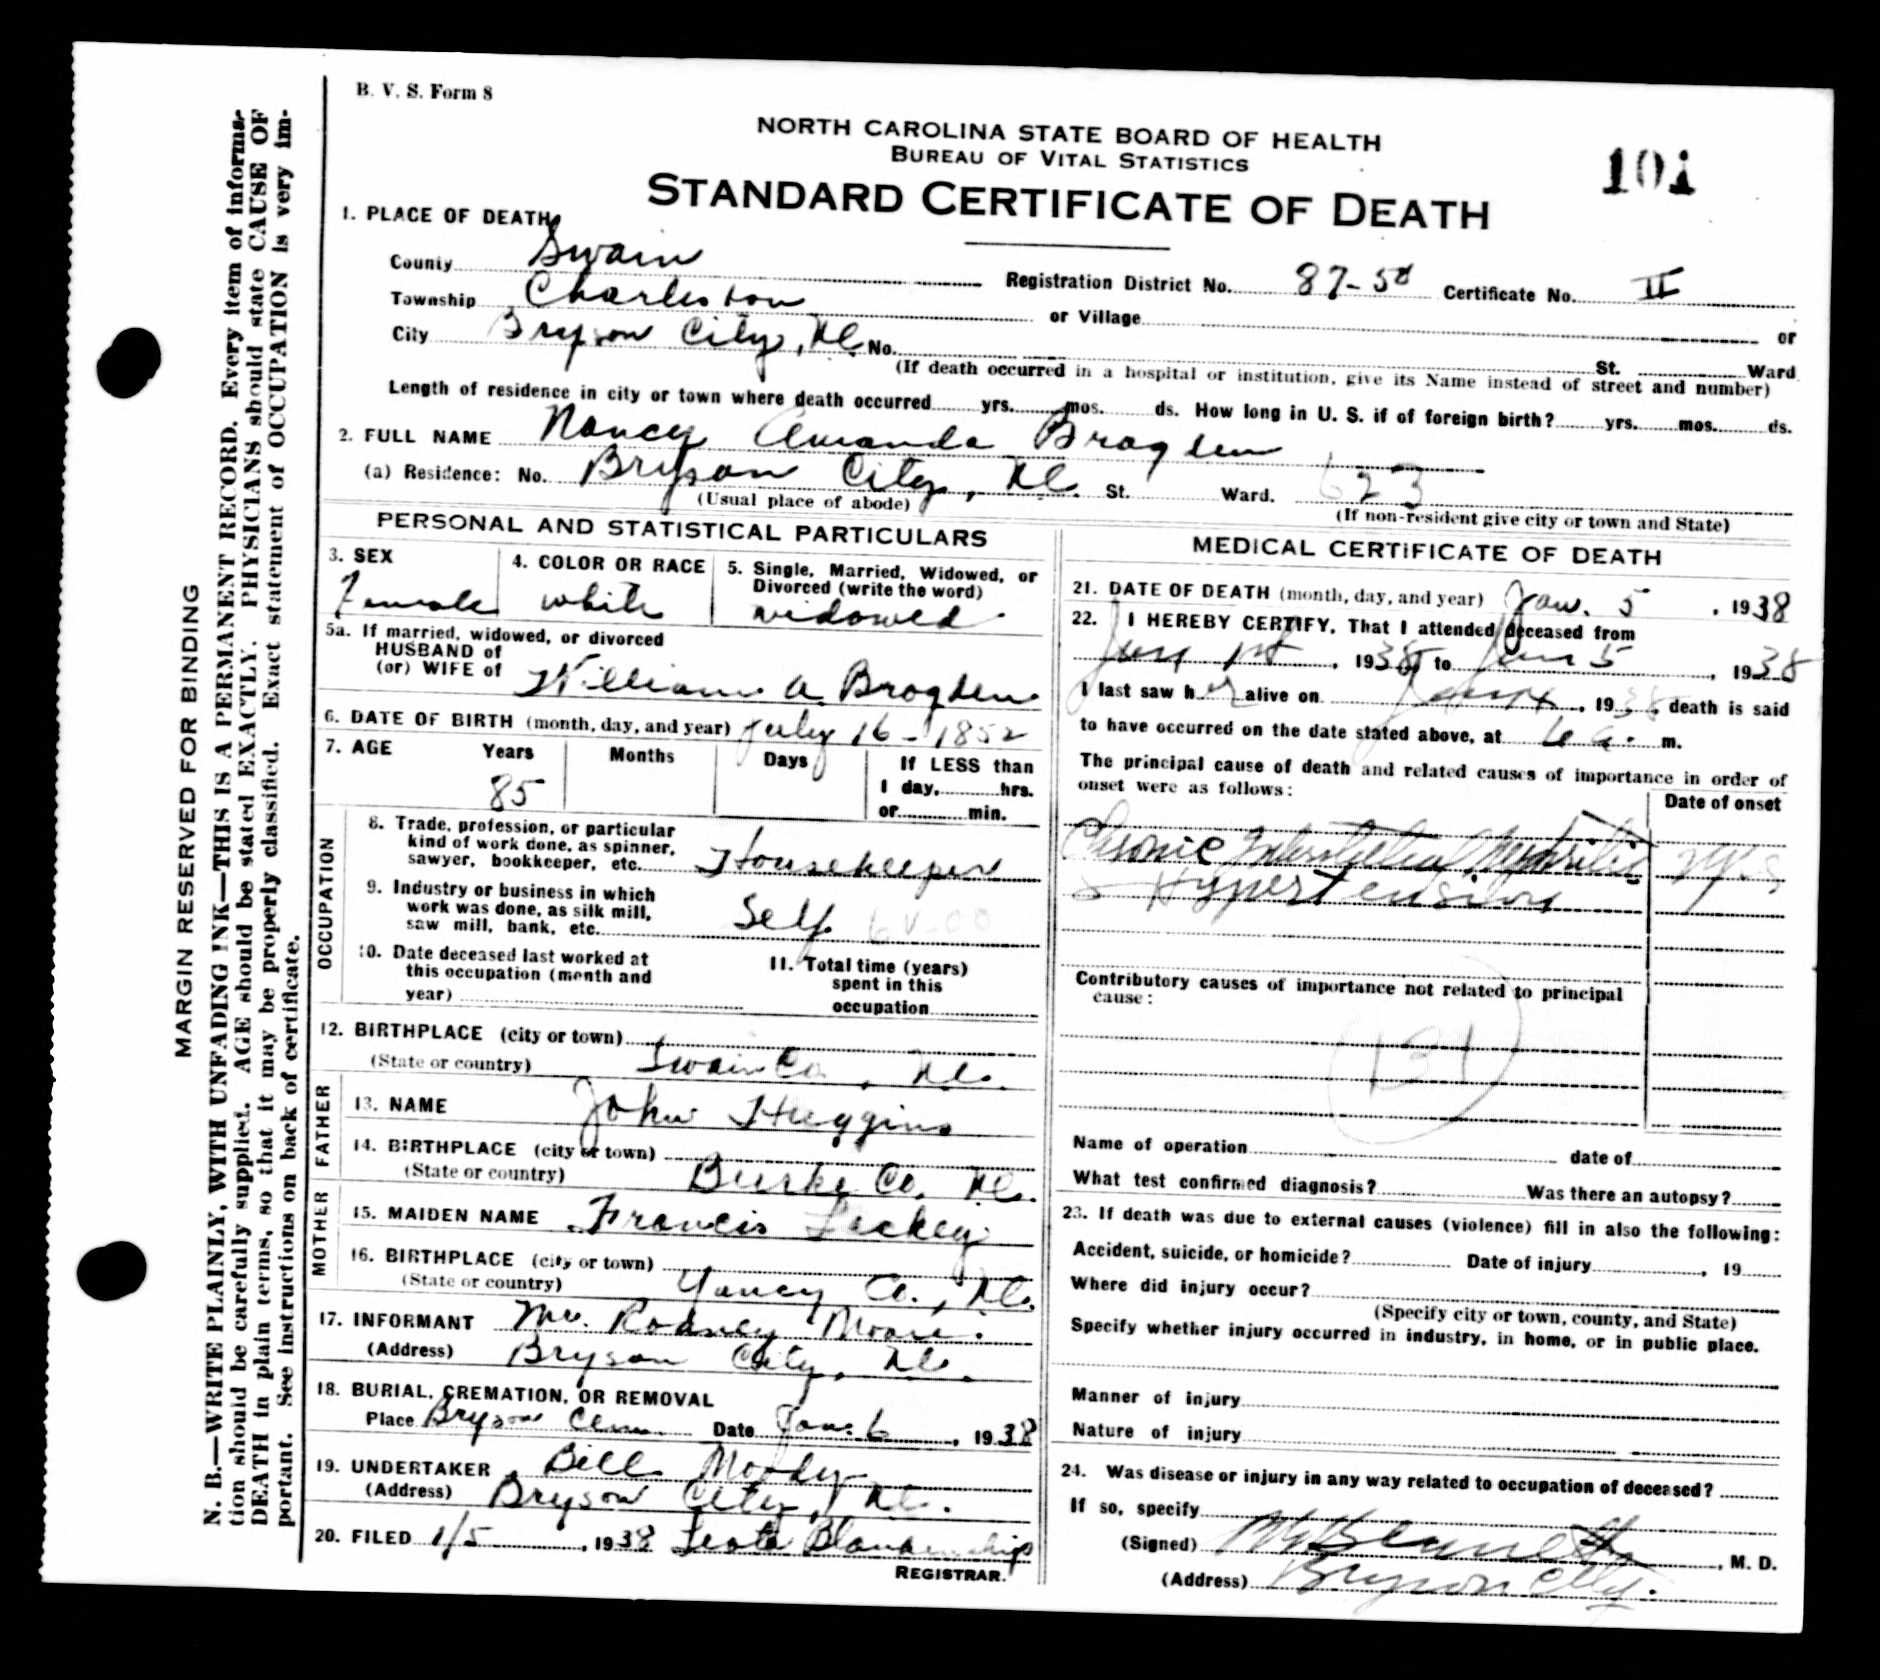 B. V. S. Form 8
NORTH CAROLINA STATE BOARD OF HEALTH
BUREAU OF VITAL STATISTICS
101
STANDARD CERTIFICATE OF DEATH
1. PLACE OF DEATH
County Swain Registration District No. 87-50 Certificate No. II
Township Charleston or Village or
City Bryson City, N.C. No. St. Ward
(If death occurred in a hospital or institution, give its Name instead of street and number)
Length of residence in city or town where death occurred yrs. mos. ds. How long in U. S. if of foreign birth? yrs. mos. ds.
2. FULL NAME Nancy Amanda Brogden
(a) Residence: No. Bryson City, N.C. St. Ward. 623
(Usual place of abode) (If non-resident give city or town and State)
PERSONAL AND STATISTICAL PARTICULARS
3. SEX
Female
4. COLOR OR RACE
white
5. Single, Married, Widowed, or
Divorced (write the word)
widowed
5a. If married, widowed, or divorced
HUSBAND of
(or) WIFE of William A Brogden
6. DATE OF BIRTH (month, day, and year) July 16 - 1852
7. AGE Years Months Days If LESS than
85 1 day, hrs.
or min.
OCCUPATION
8. Trade, profession, or particular
kind of work done, as spinner,
sawyer, bookkeeper, etc. Housekeeper
9. Industry or business in which
work was done, as silk mill,
saw mill, bank, etc. Self
10. Date deceased last worked at
this occupation (month and
year)
11. Total time (years)
spent in this
occupation
12. BIRTHPLACE (city or town)
(State or country) Swain Co, N.C.
FATHER
13. NAME John Huggins
14. BIRTHPLACE (city or town)
(State or country) Burke Co. N.C.
MOTHER
15. MAIDEN NAME Francis Leckey
16. BIRTHPLACE (city or town)
(State or country) Yancy Co., N.C.
17. INFORMANT Mr. Rodney Moore.
(Address) Bryson City, N.C.
18. BURIAL, CREMATION, OR REMOVAL
Place Bryson Cem. Date Jan. 6, 1938
19. UNDERTAKER Bill Moody
(Address) Bryson City, N.C.
20. FILED 1/5, 1938 Leota Blankenship
REGISTRAR.
MEDICAL CERTIFICATE OF DEATH
21. DATE OF DEATH (month, day, and year) Jan. 5, 1938
22. I HEREBY CERTIFY, That I attended deceased from
Jan 1st, 1938, to Jan 5, 1938
I last saw her alive on, 1938, death is said
to have occurred on the date stated above, at m.
The principal cause of death and related causes of importance in order of
onset were as follows:
Date of onset
Chronic Interstitial Nephritis
& Hypertension
Contributory causes of importance not related to principal
cause:
131
Name of operation date of
What test confirmed diagnosis? Was there an autopsy?
23. If death was due to external causes (violence) fill in also the following:
Accident, suicide, or homicide? Date of injury, 19
Where did injury occur?
(Specify city or town, county, and State)
Specify whether injury occurred in industry, in home, or in public place.
Manner of injury
Nature of injury
24. Was disease or injury in any way related to occupation of deceased?
If so, specify
(Signed) Bennett, M. D.
(Address) Bryson City.
MARGIN RESERVED FOR BINDING
N. B.—WRITE PLAINLY, WITH UNFADING INK—THIS IS A PERMANENT RECORD. Every item of informa-
tion should be carefully supplied. AGE should be stated EXACTLY. PHYSICIANS should state CAUSE OF
DEATH in plain terms, so that it may be properly classified. Exact statement of OCCUPATION is very im-
portant. See instructions on back of certificate.